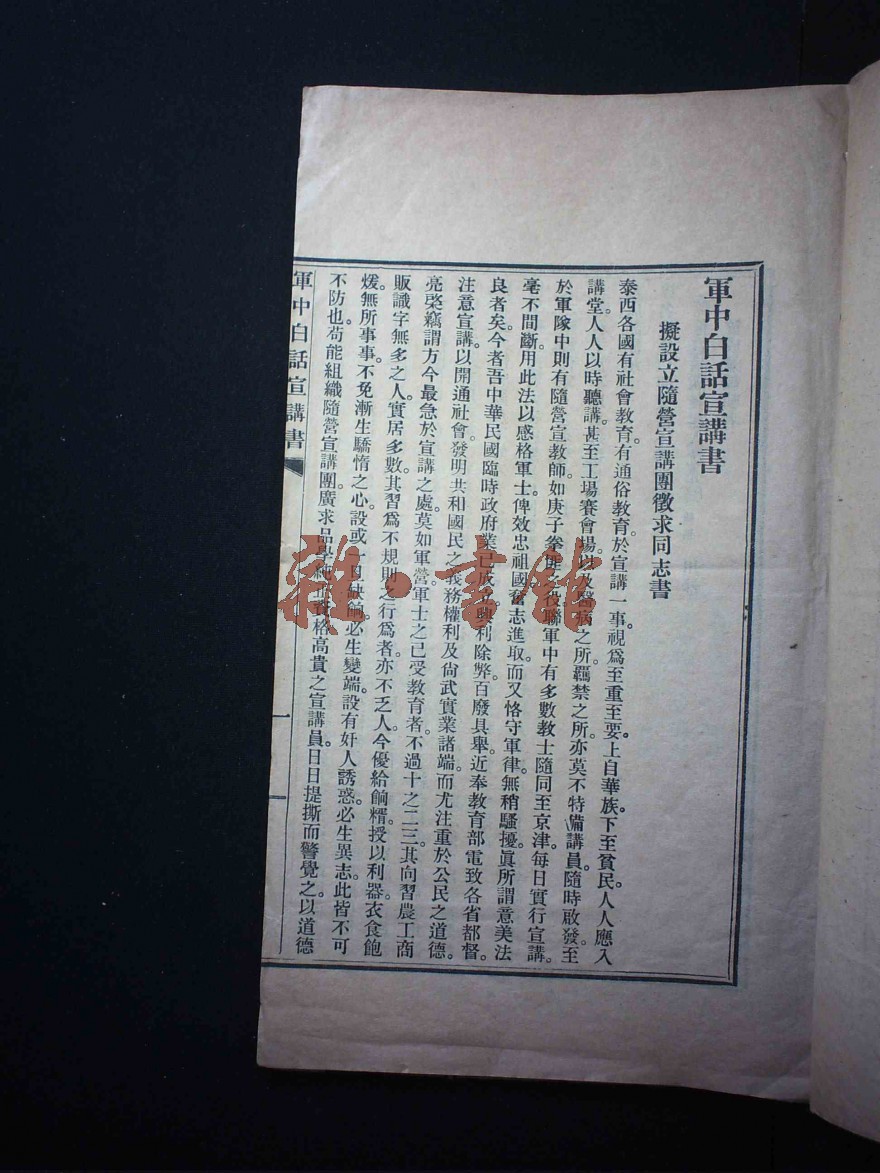 軍中白話宣講書
擬設立隨營宣講團徵求同志書
泰西各國有社會教育。有通俗教育。於宣講一事。視爲至重至要。上自華族。下至貧民。人人應入
講堂。人人以時聽講。甚至工場賽會場。以及醫病之所。羈禁之所。亦莫不特備講員。隨時啟發。至
於軍隊中。則有隨營宣教師。如庚子拳匪之役。聯軍中有多數教士隨同至京津。每日實行宣講。
毫不間斷。用此法以感格軍士。俾效忠祖國。奮志進取。而又恪守軍律。無稍騷擾。眞所謂意美法
良者矣。今者吾中華民國臨時政府。業已成立。興利除弊。百廢具舉。近奉教育部電致各省都督。
注意宣講。以開通社會。發明共和國民之義務權利。及尙武實業諸端。而尤注重於公民之道德。
亮棨竊謂方今最急於宣講之處。莫如軍營。軍士之已受教育者。不過十之二三。其向習農工商
販識字無多之人。實居多數。其習爲不規則之行爲者。亦不乏人。今優給餉糈。授以利器。衣食飽
煖。無所事事。不免漸生驕惰之心。設或一日缺餉。必生變端。設有奸人誘惑。必生異志。此皆不可
不防也。苟能組織隨營宣講團。廣求品學純 資格高貴之宣講員。日日提撕而警覺之。以道德
軍中白話宣講書
一
雜·書館